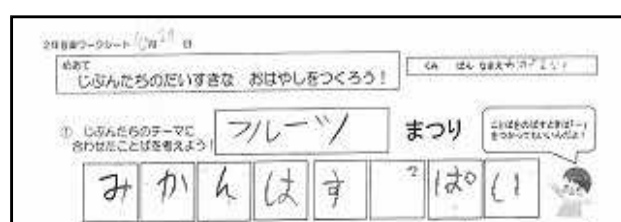 2時間目ワークシート
めあて
じぶんたちのだいすきな おはやしをつくろう!
くみ はん なまえ
① じぶんたちのテーマに
合わせたことばを考えよう!
フルーツ まつり
ことばをのばすときは「ー」
をつかってもいいんだよ!
みかんはす ぱい